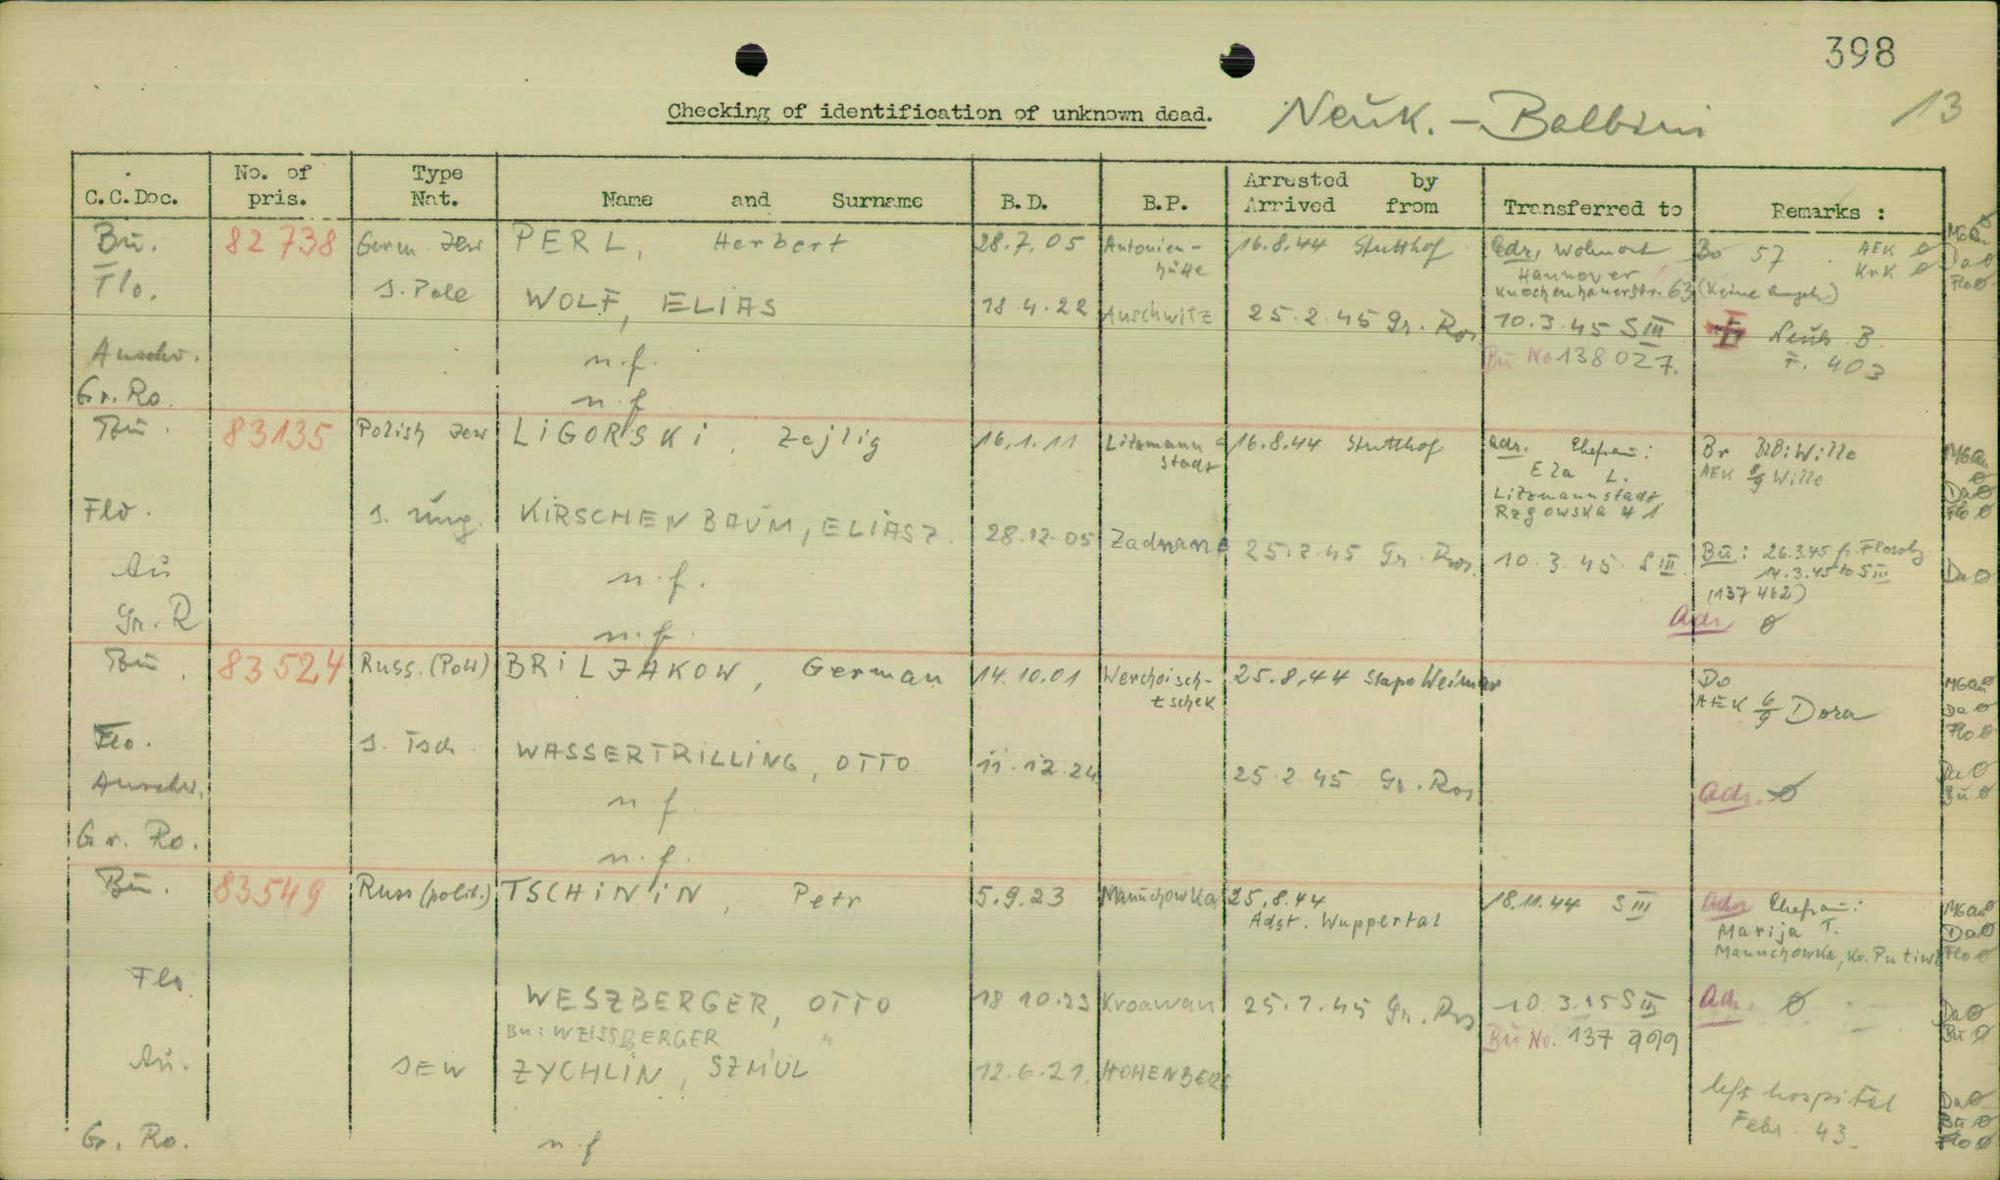 398
Checking of identification of unknown dead. Neuk. - Balbini 13
C.C.Doc. No. of pris. Type Nat. Name and Surname B.D. B.P. Arrested by Arrived from Transferred to Remarks :
Bu. 82738 Germ. Jew PERL, Herbert 28.7.05 Antonien-hütte 16.8.44 Stutthof Adr. Wohnort Hannover Knochenhauerstr. 63 Bo 57 AEK Ø KrK Ø
Flo. J. Pole WOLF, ELIAS 18.4.22 Auschwitz 25.2.45 Gr. Ros 10.3.45 S III Neuk. B. F. 403
Bu No 138027.
Auschw. n.f.
Gr. Ro. n.f.
Bu. 83135 Polish Jew LIGORSKI, Zejlig 16.1.11 Litzmannstadt 16.8.44 Stutthof Adr. Ehefrau: Eza L. Litzmannstadt, Rzgowska 41 Br BiBi Wille
AEK 8/9 Wille
Flo. J. Ung. KIRSCHENBAUM, ELIASZ 28.12.05 25.2.45 Gr. Ros. 10.3.45 S III Bu: 26.3.45 fr. Flossbg
14.3.45 to S III
(137462)
Au n.f. Adr. Ø
Gr. R n.f.
Bu. 83524 Russ. (Poli) BRILJAKOW, German 14.10.01 Werchoisch-tschek 25.8.44 Stapo Weimar Do
AEK 6/9 Dora
Flo. J. Tsch. WASSERTRILLING, OTTO 11.12.24 25.2.45 Gr. Ros
Auschw. n.f. Adr. Ø
Gr. Ro. n.f.
Bu. 83549 Russ (polit.) TSCHININ, Petr 5.9.23 Manuchowka 25.8.44 Adst. Wuppertal 18.11.44 S III Adr. Ehefrau: Marija T. Manuchowka, Kr. Putiwl
Flo. WESZBERGER, OTTO 18 10.23 Kroawan 25.2.45 Gr. Ros 10.3.45 S III Adr. Ø
Bu: WEISSBERGER " Bu No. 137999
Au. JEW ZYCHLIN, SZMUL 12.6.21. HOHENBERG left hospital Febr. 43.
Gr. Ro. n.f